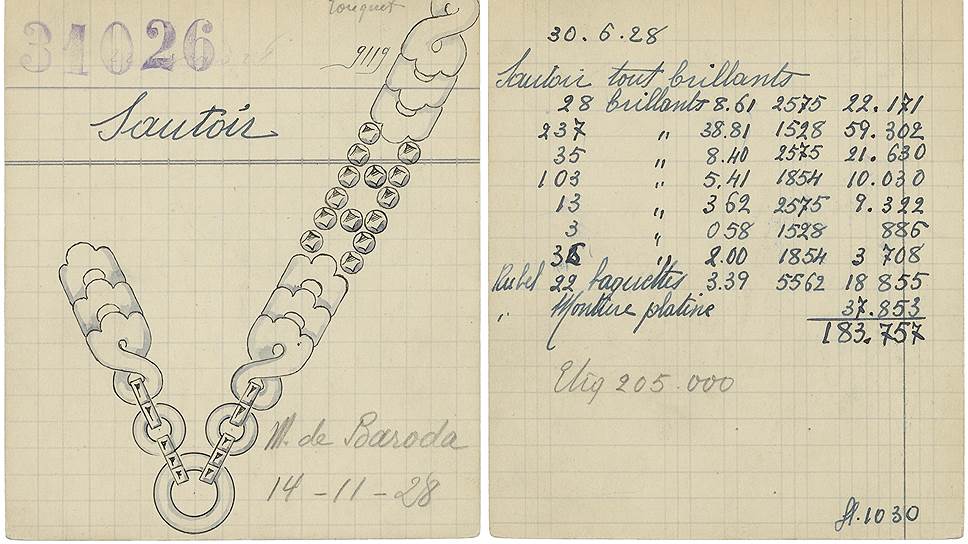 Touquet
31026
9119
Sautoir
M. de Baroda
14-11-28
30.6.28
Sautoir tout brillants
28 brillants 8.61 2575 22.171
237 " 38.81 1528 59.302
35 " 8.40 2575 21.630
103 " 5.41 1854 10.030
13 " 3.62 2575 9.322
3 " 0.58 1528 886
36 " 2.00 1854 3 708
22 baguettes 3.39 5562 18 855
" Monture platine 37.853
183.757
Etiq 205.000
1030